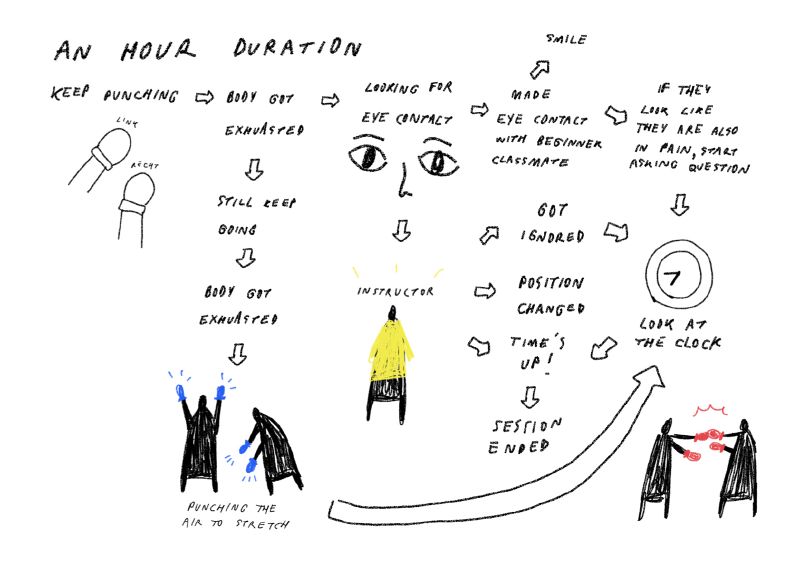 AN HOUR DURATION
KEEP PUNCHING
LINK
RECHT
BODY GOT
EXHUASTED
STILL KEEP
GOING
BODY GOT
EXHUASTED
PUNCHING THE
AIR TO STRETCH
LOOKING FOR
EYE CONTACT
INSTRUCTOR
SMILE
MADE
EYE CONTACT
WITH BEGINNER
CLASSMATE
IF THEY
LOOK LIKE
THEY ARE ALSO
IN PAIN, START
ASKING QUESTION
GOT
IGNORED
POSITION
CHANGED
TIME'S
UP!
SESSION
ENDED
LOOK AT
THE CLOCK